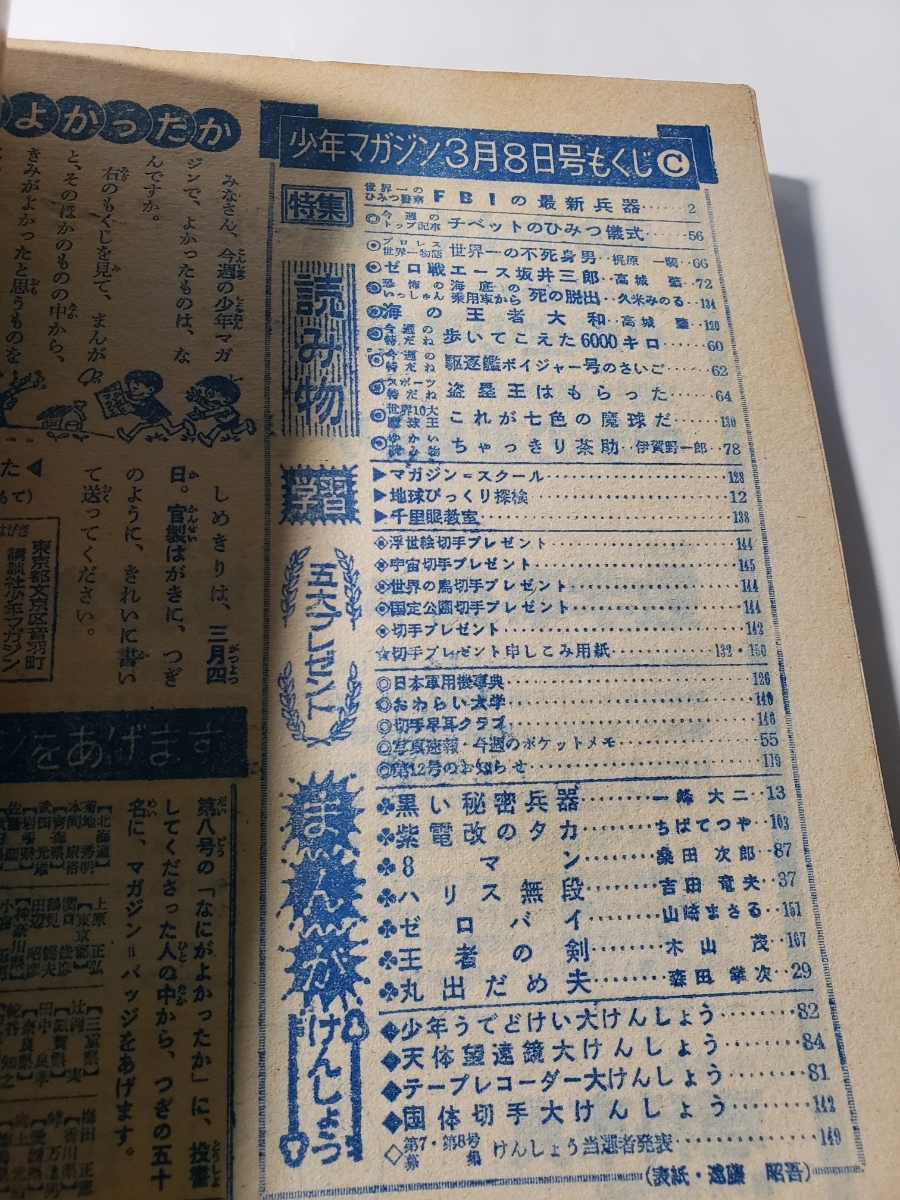 少年マガジン3月8日号もくじ C
特集
世界一のひみつ警察 FBIの最新兵器……2
◎今週のトップ記事 チベットのひみつ儀式……56
読み物
◉プロレス世界一物語 世界一の不死身男‥梶原一騎‥66
◉ゼロ戦エース坂井三郎‥高城肇‥72
◉恐怖のいっしゅん 海底の乗用車から 死の脱出‥久米みのる‥134
◉海の王者大和‥高城肇‥120
◉今週の特だね 歩いてこえた6000キロ……60
◉今週の特だね 駆逐艦ボイジャー号のさいご……62
◉スポーツ特だね 盗塁王はもらった……64
◉世界10大魔球王 これが七色の魔球だ……130
◉ゆかい読み物 ちゃっきり茶助‥伊賀野一郎‥78
学習
▶マガジン=スクール……128
▶地球びっくり探検……12
▶千里眼教室……138
五大プレゼント
◉浮世絵切手プレゼント……144
◉宇宙切手プレゼント……145
◉世界の鳥切手プレゼント……144
◉国定公園切手プレゼント……144
◉切手プレゼント……142
☆切手プレゼント申しこみ用紙……132・150
◎日本軍用機事典……126
◎おわらい大学……140
◎切手早耳クラブ……146
◎写真速報・今週のポケットメモ……55
◎第12号のお知らせ……119
まんが
✤黒い秘密兵器……一峰大二‥13
✤紫電改のタカ……ちばてつや‥103
✤8マン……桑田次郎‥87
✤ハリス無段……吉田竜夫‥37
✤ゼロバイ……山崎まさる‥151
✤王者の剣……木山茂‥167
✤丸出だめ夫……森田拳次‥29
けんしょう
◆少年うでどけい大けんしょう……82
◆天体望遠鏡大けんしょう……84
◆テープレコーダー大けんしょう……81
◆団体切手大けんしょう……142
◇第7・第8号 けんしょう当選者発表……149
(表紙・遠藤昭吾)
よかったか
みなさん、今週の少年マガ
ジンで、よかったものは、な
んですか。
右のもくじを見て、まんが
と、そのほかのものの中から、
きみがよかったと思うものを
しめきりは、三月四
日。官製はがきに、つぎ
のように、きれいに書い
て送ってください。
東京都文京区音羽町
講談社少年マガジン
をあげます
第八号の「なにがよかったか」に、投書
してくださった人の中から、つぎの五十
名に、マガジン=バッジをあげます。